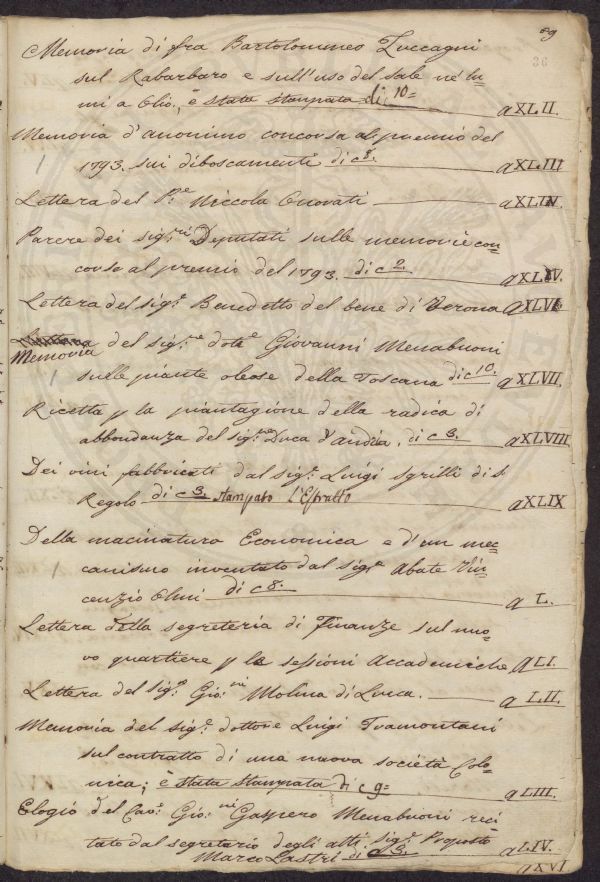 69
36
Memoria di fra Bartolommeo Zuccagni
sul Rabarbaro e sull'uso del sale ne' lu-
mi a Olio, è stata stampata di 10= a XLII.
Memoria d'anonimo concorsa al premio del
1793. sui diboscamenti di c a XLIII
Lettera del P.e Niccola Onorati a XLIV
Parere dei sig.ri Deputati sulle memorie con-
corse al premio del 1793. di c 2. a XLV.
Lettera del sig.r Benedetto del bene di Verona a XLVI
Memoria del sig.re dott.e Giovanni Menabuoni
sulle piante oleose della Toscana di c 10. a XLVII.
Ricetta p la piantagione della radica di
abbondanza del sig.r Duca d'Andria, di c 3. a XLVIII
Dei vini fabbricati dal sig.r Luigi Sgrilli di S.
Regolo di c 3. stampato l'Estratto a XLIX
Della macinatura Economica e d'un mec-
canismo inventato dal sig.e Abate Vin-
cenzio Olmi di c 8. a L.
Lettera della segreteria di Finanze sul nuo-
vo quartiere p le sessioni Accademiche a LI.
Lettera del sig.r Gio:ni Molina di Lucca. a LII.
Memoria del sig.r dottore Luigi Tramontani
sul contratto di una nuova società Colo-
nica; è stata stampata di c 9= a LIII.
Elogio del Cav.r Gio:ni Gaspero Menabuoni reci-
tato dal segretario degli atti sig.r Proposto
Marco Lastri di c 3. a LIV.
a XVI